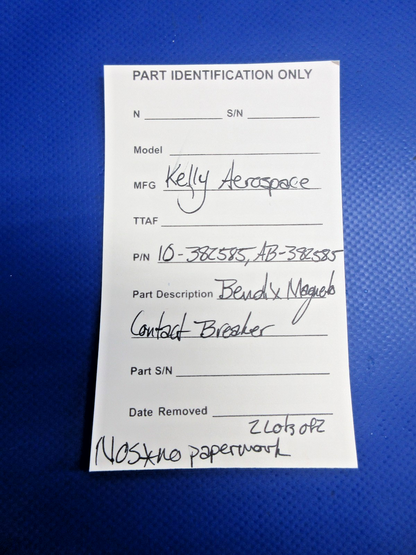 PART IDENTIFICATION ONLY
N ________ S/N ________
Model ________
MFG Kelly Aerospace
TTAF ________
P/N 10-382585, AB-382585
Part Description Bendix Magneto
Contact Breaker
Part S/N ________
Date Removed ________
2 Lots of 2
NOS*no paperwork